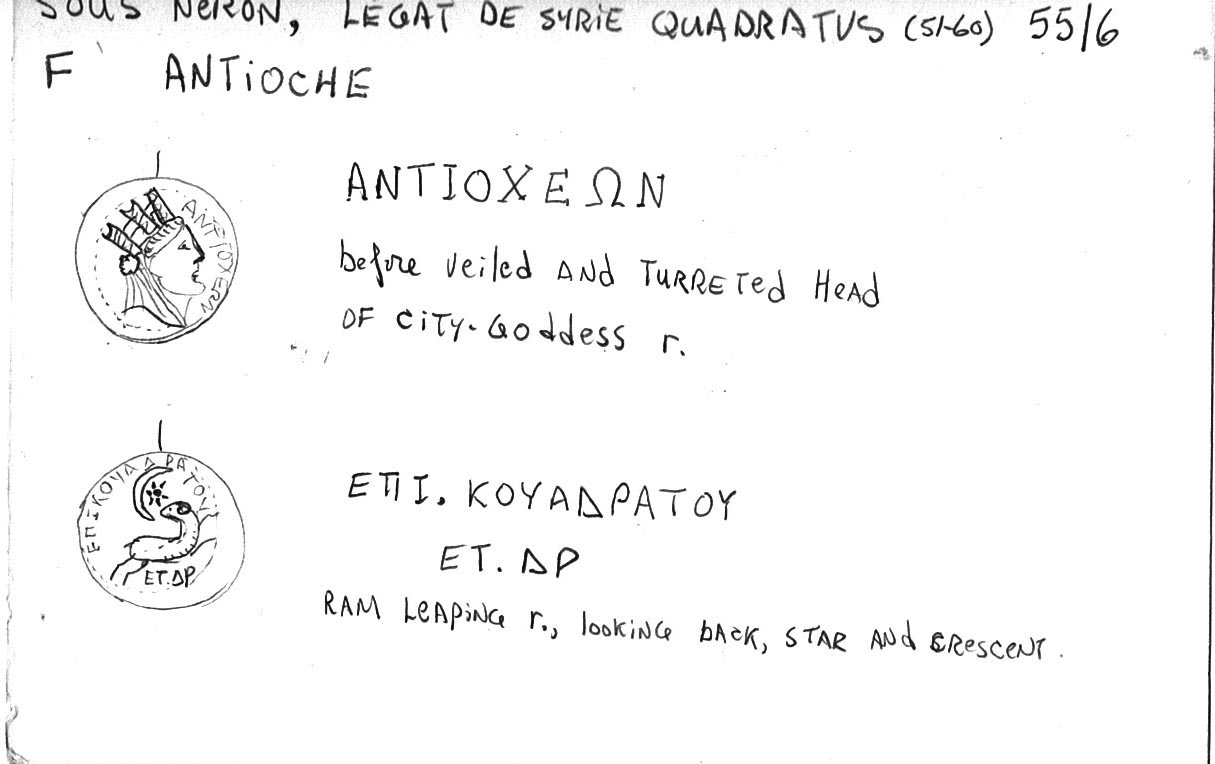 SOUS NERON, LEGAT DE SYRIE QUADRATUS (51-60) 55/6
F ANTIOCHE
ΑΝΤΙΟΧΕΩΝ
ΑΝΤΙΟΧΕΩΝ
before veiled AND TURRETed HeAd
OF CiTY-Goddess r.
ΕΠΙΚΟΥΑΔΡΑΤΟΥ
ΕΤ.ΔΡ
ΕΠΙ. ΚΟΥΑΔΡΑΤΟΥ
ΕΤ. ΔΡ
RAM LeAPiNG r., lookiNG bAcK, STAR ANd CRescenT.